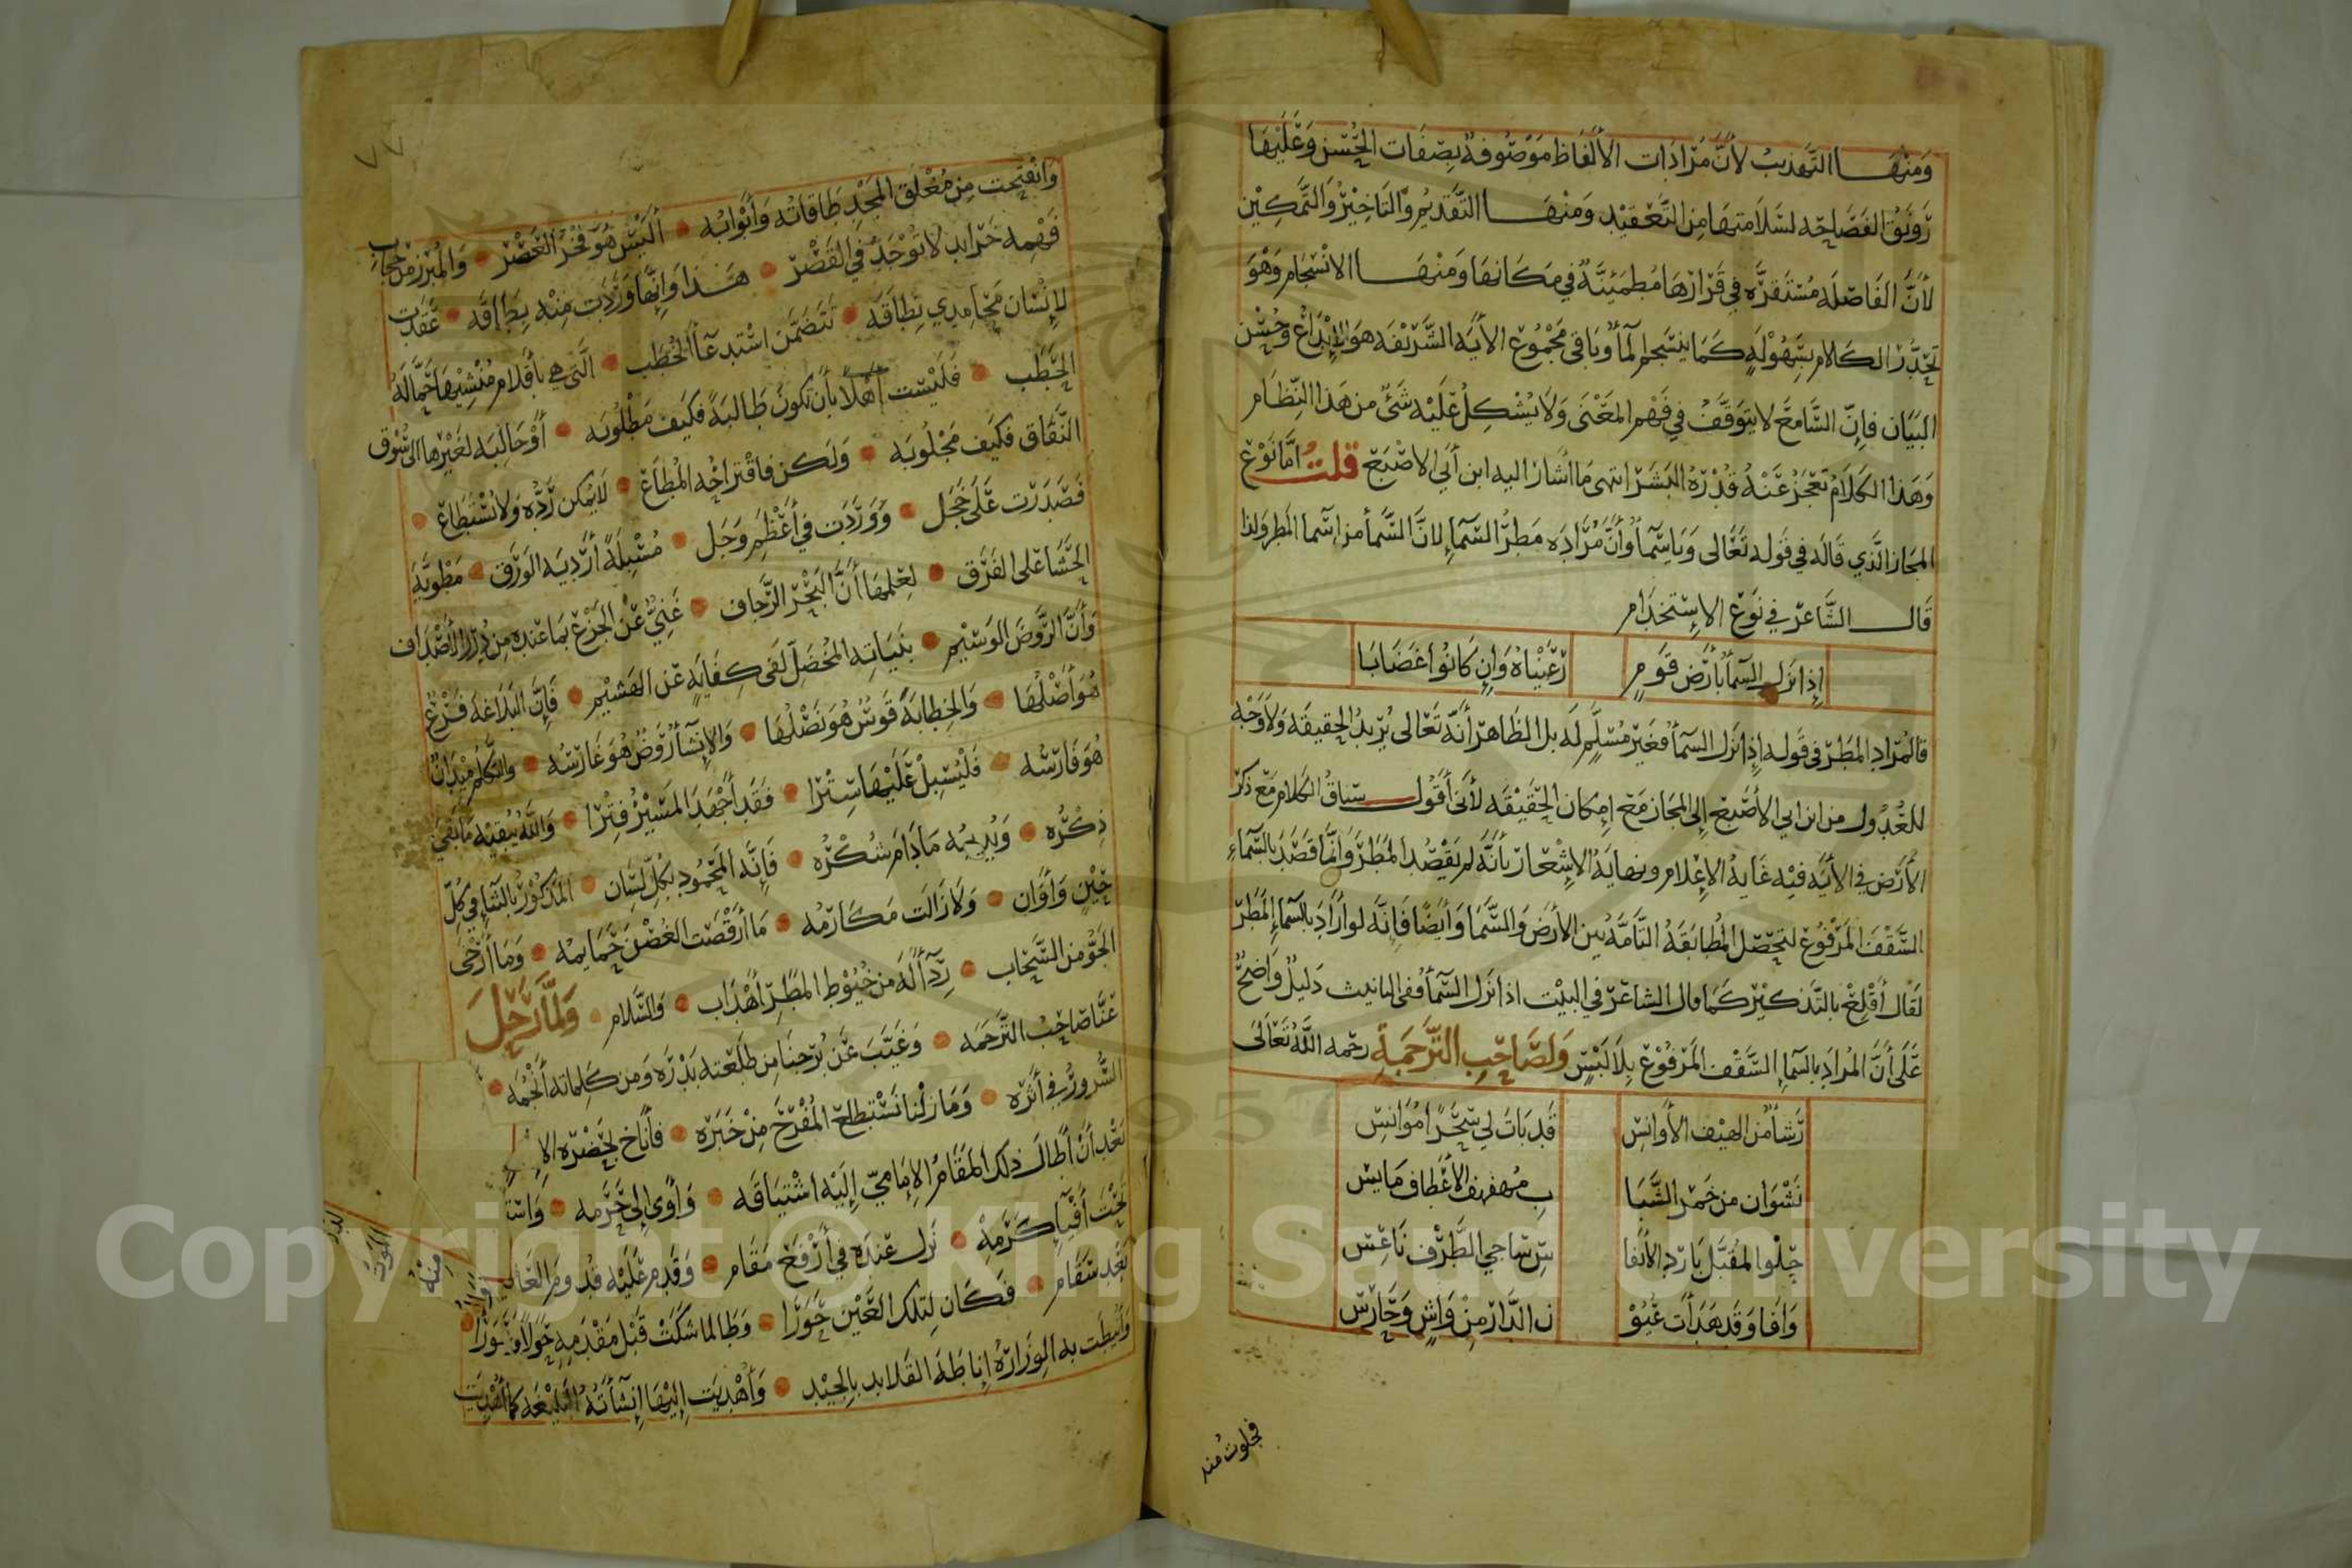 ومنها التهذيب لأن مرادات الألفاظ موصوفة بصفات الحسن وعليها
رونق الفصاحه لسلامتها من التعقيد ومنها التقديم والتاخير والتمكين
لأن الفاصله مستقره في قرارها مطمئنة في مكانها ومنها الانسجام وهو
تحدر الكلام بسهولة كما ينسجم الماء وباقي مجموع الأية الشريفه هو الإبداع وحسن
البيان فإن السامع لا يتوقف في فهم المعنى ولا يشكل عليه شئ من هذا النظام
وهذا الكلام تعجز عنه قدرة البشر انتهى ما أشار اليه ابن أبي الاصبع قلت أما نوع
المجاز الذي قاله في قوله تعالى ويا سماء وأن مراده مطر السماء لان السماء من اسما المطر ولذا
قال الشاعر في نوع الإستخدام
إذا نزل السماء بأرض قوم رعيناه وإن كانوا غضابا
فالمراد المطر في قوله إذا نزل السماء فغير مسلم له بل الظاهر أنه تعالى يريد الحقيقة ولا وجه
للعدول من ابن ابي الأصبع إلى المجاز مع إمكان الحقيقه لأني أقول سياق الكلام مع ذكر
الأرض في الأيه فيه غاية الإعلام ونهاية الإشعار بأنه لم يقصد المطر وانما قصد بالسماء
السقف المرفوع لتحصل المطابقة التامه بين الأرض والسما وأيضا فإنه لو أراد بالسماء المطر
لقال أقلع بالتذكير كما قال الشاعر في البيت اذا نزل السماء ففي التانيث دليل واضح
على أن المراد بالسماء السقف المرفوع بلا لبس ولصاحب الترجمة رحمه الله تعالى
رشأ من الهيف الأوانس قد بات لي سحرا موانس
نشوان من خمر الشبا ب مهفهف الأعطاف مايس
حلو المقبل بارد الأنفا س ساجي الطرف ناعس
وافا وقد هدأت عيو ن الدار من واش وحارس
فجلوت منه
٧٧
وانفتحت من مغلق المجد طاقاته وأبوابه أليس هو فخر العصر والمبرز من حجاب
فهمه خرايد لا توجد في القصر هذا وإنها وردت منه بطاقه عقدت
لإنسان محامدي نطاقه تتضمن استدعاء الخطب التي هي بأقلام منشيها حمالة
الحطب فليست أهلا بأن تكون طالبة فكيف مطلوبه أو جالبه لغيرها الى سوق
النفاق فكيف مجلوبه ولكن فاقتراحه المطاع لا يمكن رده ولا يستطاع
فصدرت على خجل ووردت في أعظم وجل مسبلة أردية الورق مطوية
الحشا على الفرق لعلمها أن البحر الرجاف غني عن الجزع بما عنده من درر الأصداف
وأن الروض الوسيم بنباته المخضل لفي كفاية عن الهشيم فإن البلاغة فرع
هو أصلها والخطابة قوس هو نصلها والإنشاء روض هو غارسه والكلم ميدان
هو فارسه فليسبل عليها سترا فقد أجهد المسير فترا والله يبقيه ما بقي
ذكره ويديمه مادام شكره فإنه المحمود بكل لسان المذكور بالثناء في كل
حين وأوان ولا زالت مكارمه ما أرقصت الغصن حمايمه وما أرخى
الجو من السحاب رداء له من خيوط المطر أهداب والسلام ولما رحل
عنا صاحب الترجمه وغيب عن برجنا من طلعته بدره ومن كلماته أنجمه
السرور في أثره وما زلنا نستطلع المفرح من خبره فأناخ بحضرة الا
بعد أن أطال ذلك المقام الإمامي إليه اشتياقه وأوى إلى حرمه واست
تحت أفياء كرمه نزل عنده في أرفع مقام وقدم عليه قدوم العا
بعد سقام فكان لتلك العين حورا وطالما شكت قبل مقدمه حولا وعورا
وأنيطت به الوزارة إناطة القلايد بالجيد وأهديت إليها إنشآته البليغه كما أهديت
منه
الموت